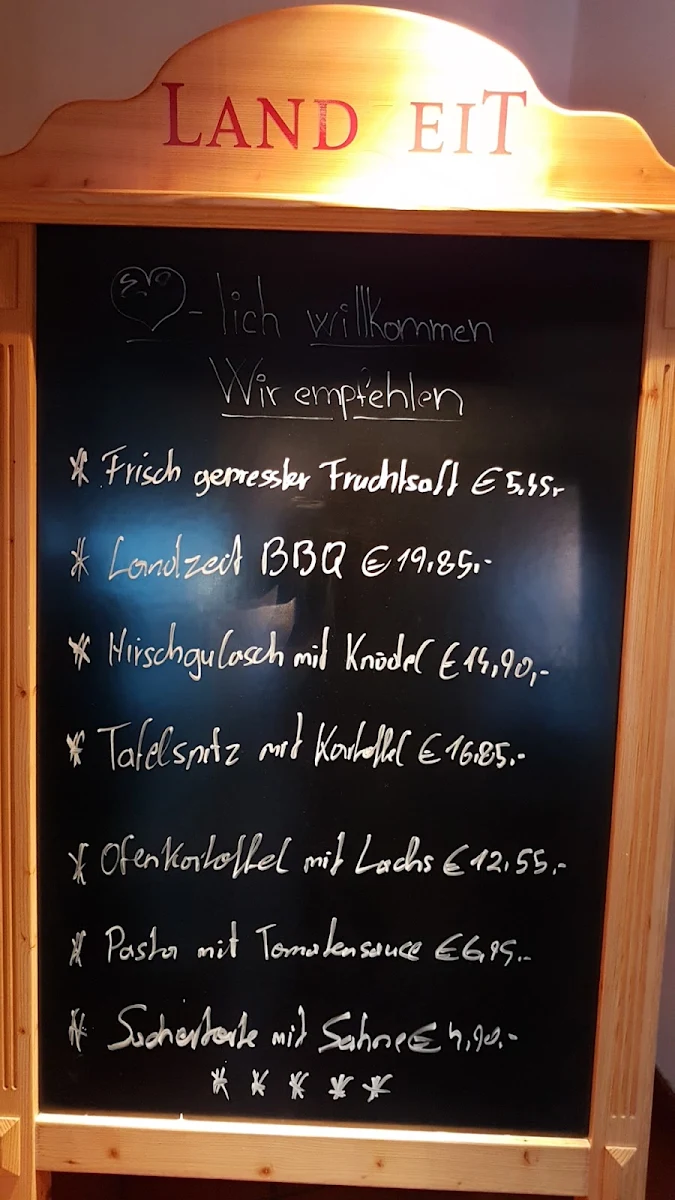 LAND EIT
-lich willkommen
Wir empfehlen
* Frisch gepresster Fruchtsaft €
* Landzeit BBQ € 19,85,-
* Hirschgulasch mit Knödel € 14,90,-
* Tafelspitz mit Kartoffel € 16,85,-
* Ofenkartoffel mit Lachs € 12,55,-
* Pasta mit Tomatensauce €
* Sachertorte mit Sahne € 4,90,-
* * * * *